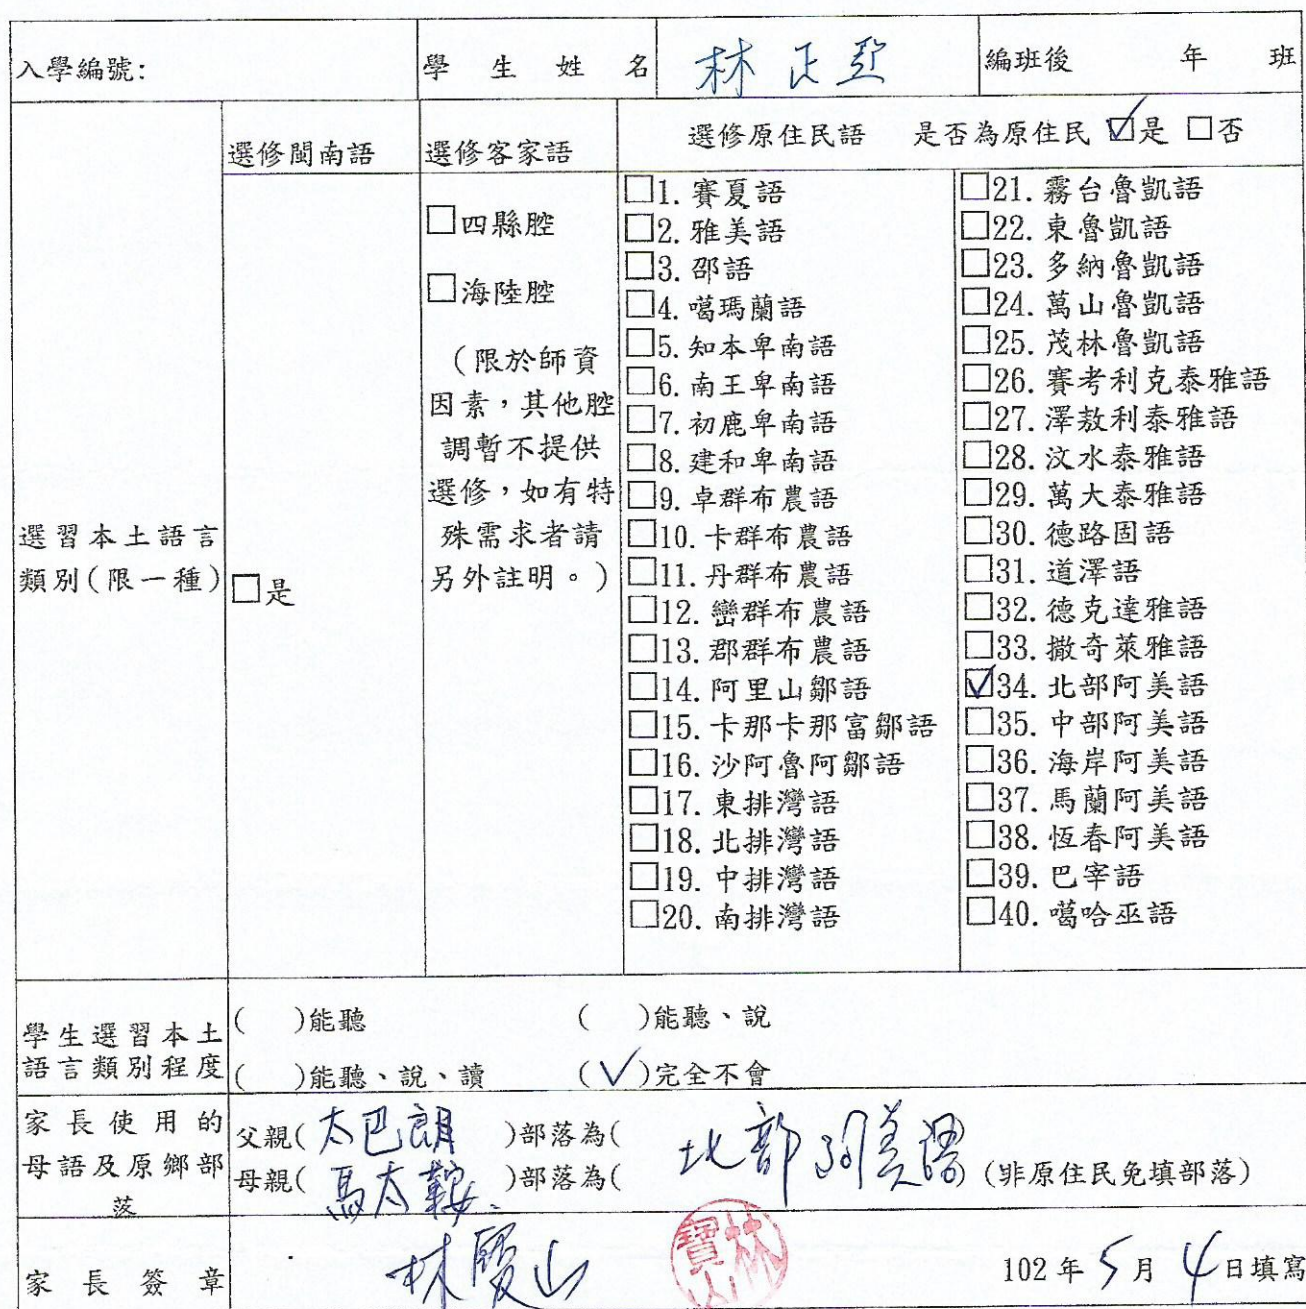 入學編號: 學生姓名 林正 編班後 年 班
選習本土語言類別(限一種)
選修閩南語
□是
選修客家語
□四縣腔
□海陸腔
(限於師資
因素，其他腔
調暫不提供
選修，如有特
殊需求者請
另外註明。)
選修原住民語 是否為原住民 ☑是 □否
□1.賽夏語
□2.雅美語
□3.邵語
□4.噶瑪蘭語
□5.知本卑南語
□6.南王卑南語
□7.初鹿卑南語
□8.建和卑南語
□9.卓群布農語
□10.卡群布農語
□11.丹群布農語
□12.巒群布農語
□13.郡群布農語
□14.阿里山鄒語
□15.卡那卡那富鄒語
□16.沙阿魯阿鄒語
□17.東排灣語
□18.北排灣語
□19.中排灣語
□20.南排灣語
□21.霧台魯凱語
□22.東魯凱語
□23.多納魯凱語
□24.萬山魯凱語
□25.茂林魯凱語
□26.賽考利克泰雅語
□27.澤敖利泰雅語
□28.汶水泰雅語
□29.萬大泰雅語
□30.德路固語
□31.道澤語
□32.德克達雅語
□33.撒奇萊雅語
☑34.北部阿美語
□35.中部阿美語
□36.海岸阿美語
□37.馬蘭阿美語
□38.恆春阿美語
□39.巴宰語
□40.噶哈巫語
學生選習本土
語言類別程度
( )能聽 ( )能聽、說
( )能聽、說、讀 (✓)完全不會
家長使用的
母語及原鄉部
落
父親(太巴塱 )部落為( 北部阿美語
母親(馬太鞍. )部落為( ) (非原住民免填部落)
家長簽章 林寶山 林寶山 102年5月4日填寫